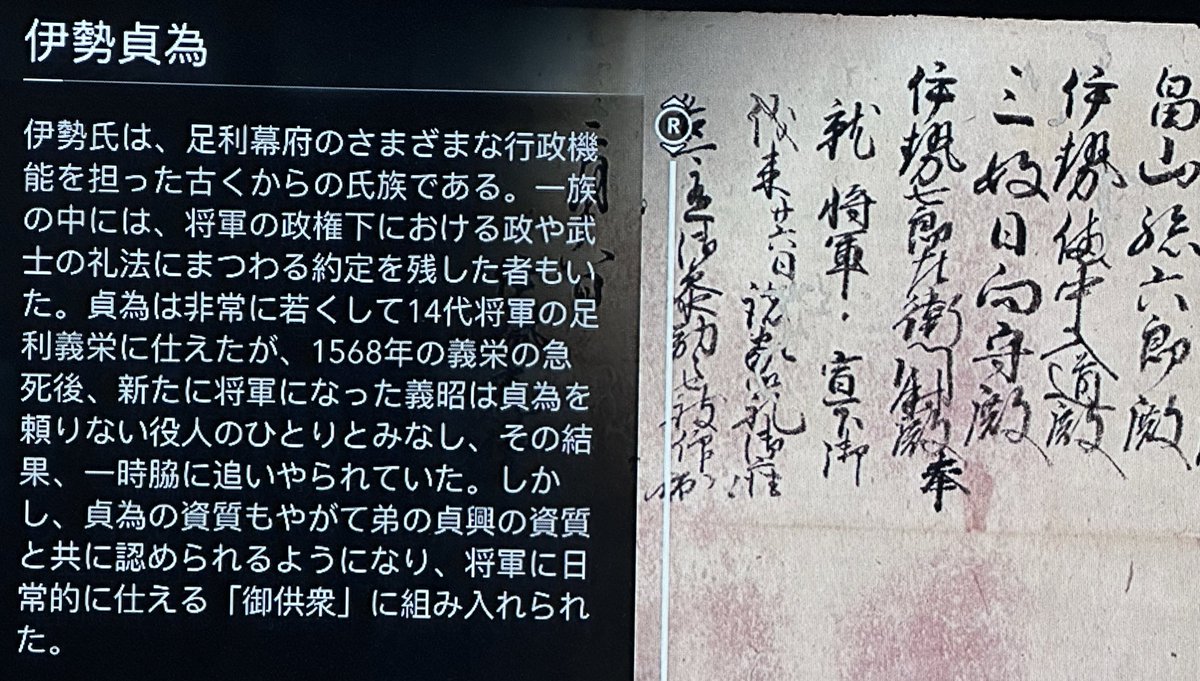 伊勢貞為
伊勢氏は、足利幕府のさまざまな行政機
能を担った古くからの氏族である。一族
の中には、将軍の政権下における政や武
士の礼法にまつわる約定を残した者もい
た。貞為は非常に若くして14代将軍の足
利義栄に仕えたが、1568年の義栄の急
死後、新たに将軍になった義昭は貞為を
頼りない役人のひとりとみなし、その結
果、一時脇に追いやられていた。しか
し、貞為の資質もやがて弟の貞興の資質
と共に認められるようになり、将軍に日
常的に仕える「御供衆」に組み入れられ
た。
R
畠山孫六郎殿
伊勢備中入道殿
三好日向守殿
伊勢七郎左衛門尉殿 奉
就 将軍 宣下御
後来廿六日